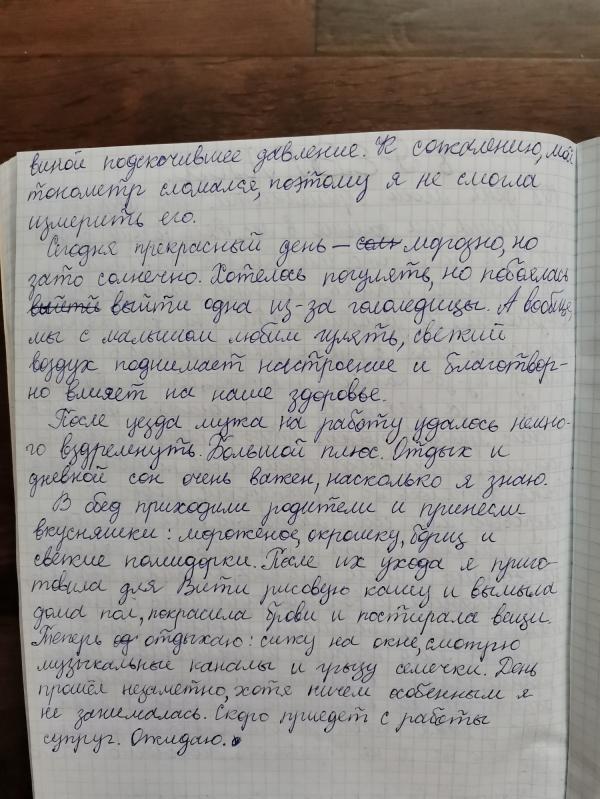 виной подскочившее давление. К сожалению, мой
тонометр сломался, поэтому я не смогла
измерить его.
Сегодня прекрасный день – морозно, но
зато солнечно. Хотелось погулять, но побоялась
выйти выйти одна из-за гололедицы. А вообще,
мы с малышом любим гулять, свежий
воздух поднимает настроение и благотвор-
но влияет на наше здоровье.
После уезда мужа на работу удалось немно-
го вздремнуть. Большой плюс. Отдых и
дневной сон очень важен, насколько я знаю.
В обед приходили родители и принесли
вкусняшки: мороженое, окрошку, борщ и
свежие помидорки. После их ухода я приго-
товила для Вити рисовую кашу и вымыла
дома пол, покрасила брови и постирала вещи.
Теперь отдыхаю: сижу на окне, смотрю
музыкальные каналы и грызу семечки. День
прошёл незаметно, хотя ничем особенным я
не занималась. Скоро приедет с работы
супруг. Ожидаю.